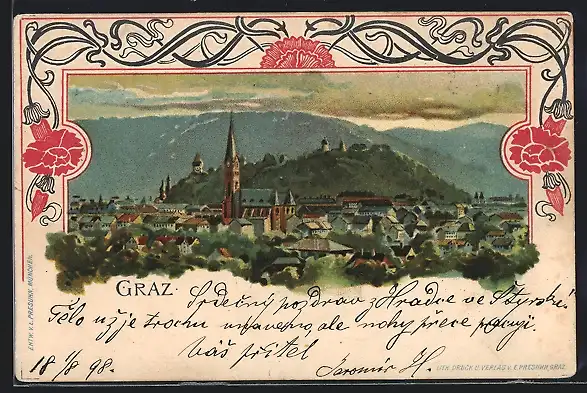 GRAZ.
Srdečný pozdrav z Hradce ve Štyrské.
Tělo už je trochu unaveno, ale nohy přece pracují.
Váš přítel
18 1/8 98. Jaromír H.
ENTW. V. E. PRESUHN, MÜNCHEN.
LITH. DRUCK U. VERLAG V. E. PRESUHN, GRAZ